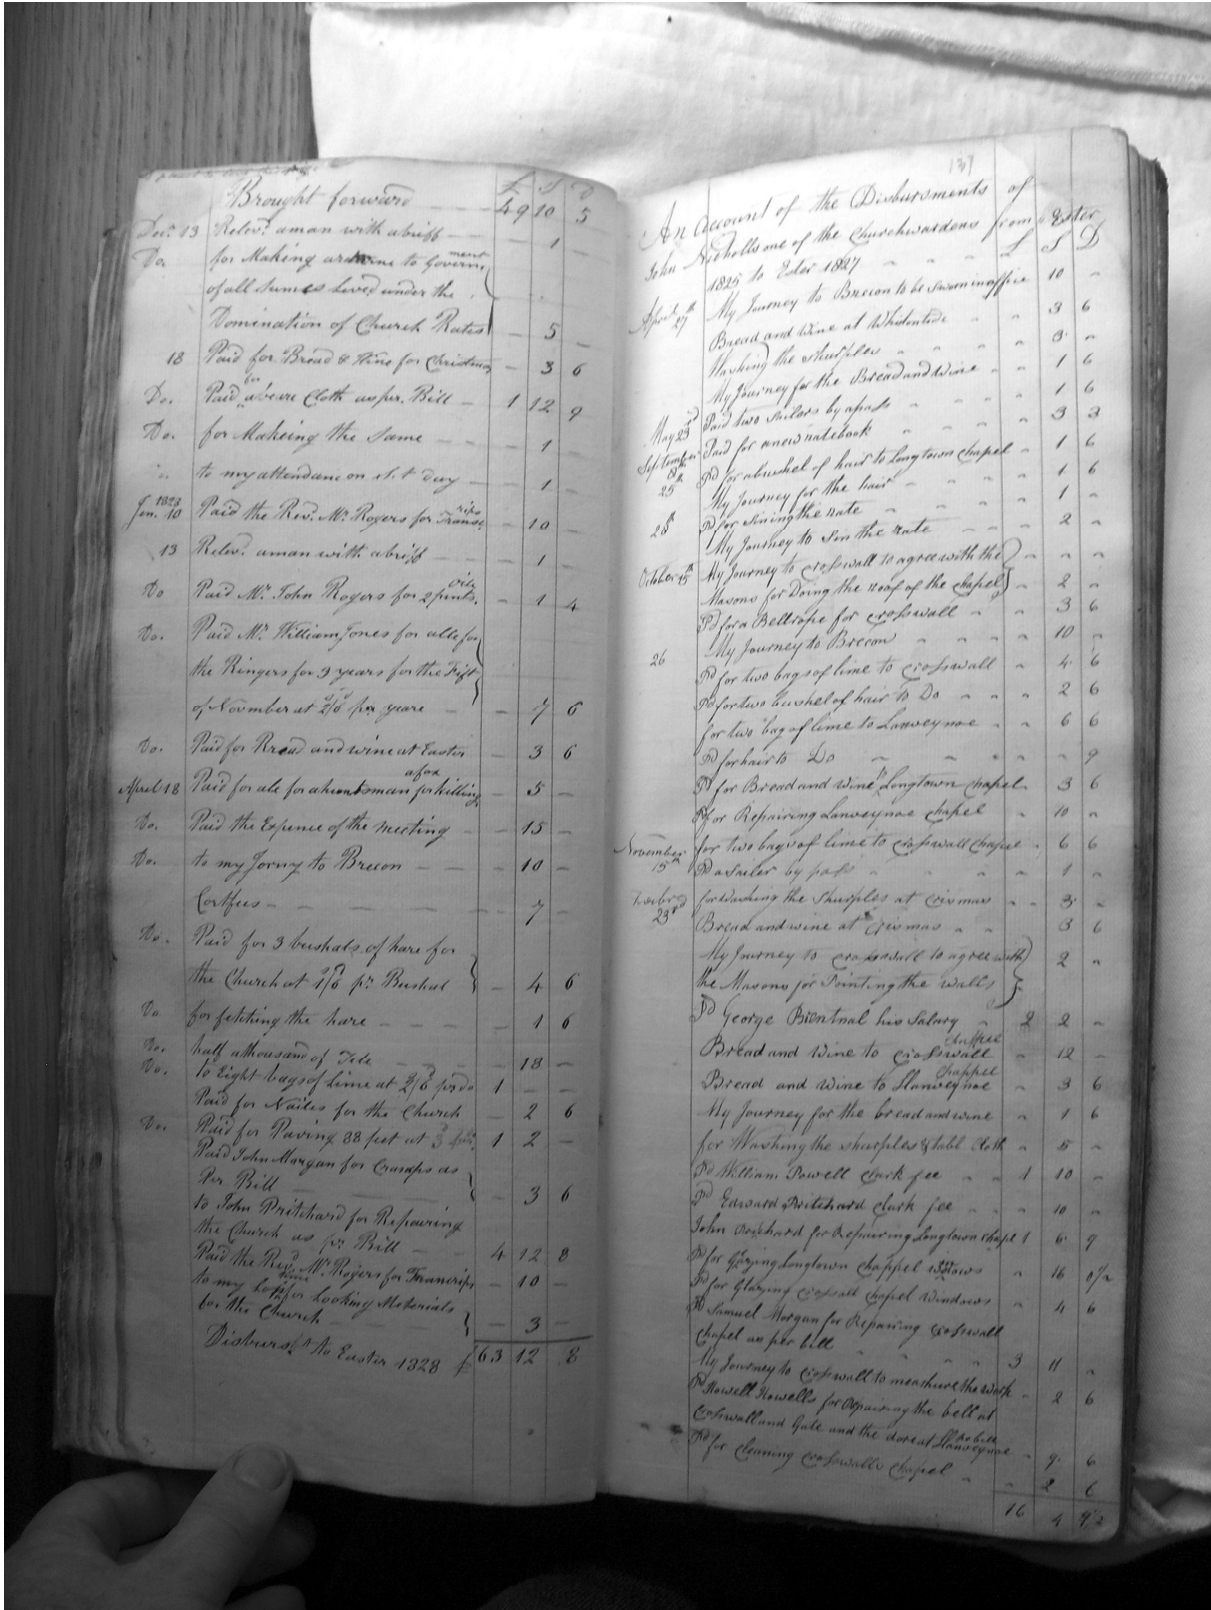 £ S D
Brought forward 49 10 5
Decr. 13 Relevd. a man with a briff - 1 -
Do. for Making a to Governe ment
of all Sumes Leved under the
Domination of Church Rates - 5 -
18 Paid for Bread & Wine for Christmas - 3 6
Do. Paid for Cloth as per. Bill - 1 12 9
Do. for Makeing the Same - 1 -
to my attendance on st. day - 1 -
1828
Jan. 10 Paid the Revd. Mr. Rogers for Transcrips - 10 -
13 Relevd. a man with a briff - 1 -
Do Paid Mr. John Rogers for 2 pints. Oile - 1 4
Do. Paid Mr. William Jones for alle for
the Ringers for 3 years for the Fift
of November at 2/6 per yeare - 7 6
Do. Paid for Bread and wine at Easter - 3 6
April 18 Paid for ale for a huntsman for killing a fox - 5 -
Do. Paid the Expence of the meeting - 15 -
Do. to my Jorny to Brecon - 10 -
Cortfees - 7 -
Do. Paid for 3 bushals of hare for
the Church at 1/6 pr. Bushal - 4 6
Do for fetching the hare - 1 6
Do. half a thousand of Tile - 18 -
Do. to Eight bags of Lime at 2/6 per do 1 - -
Paid for Nailes for the Church - 2 6
Do. Paid for Paving 88 feet at 3 1 2 -
Paid John Morgan for Cramps as
Per Bill - 3 6
to John Pritchard for Repairing
the Church as pr. Bill - 4 12 8
Paid the Revd. Mr. Rogers for Transcrips - 10 -
to my Loss time for Looking Materials
for the Church - 3 -
Disburst to Easter 1828 £ 63 12 8
137
An Account of the Disbursments of
John Nicholls one of the Churchwardens from Ester
1825 to Ester 1827 £ S D
April 27th My Journey to Brecon to be Sworn in office 10 "
Bread and Wine at Whitentide " " 3 6
Washing the Surples " " 3 "
My Journey for the Bread and Wine " " 1 6
May 23d Paid two Sailors by a pass " " 1 6
September 8th Paid for a new ratebook " " 3 3
25th Pd for a bushel of hair to Longtown chapel " 1 6
My Journey for the hair " " 1 6
28th Pd for Sining the rate " " 1 "
My Journey to Sin the rate " " 2 "
October 15th My Journey to crosswall to agree with the " " "
Masons for Doing the roof of the chapel " 2 "
Pd for a Bellrope for crosswall " " 3 6
26 My Journey to Brecon " " 10 "
Pd for two bags of lime to crosswall " 4 6
Pd for two bushel of hair to Do " " 2 6
for two bag of lime to Lanveynoe " " 6 6
Pd for hair to Do " " " 9
Pd for Bread and wine to Longtown chapel " 3 6
Pd for Repairing Lanveynoe chapel " 10 "
November 15th for two bags of lime to crosswall chapel " 6 6
Pd a Sailer by pass " " 1 "
23rd for Washing the Surples at crismas " " 3 "
Bread and wine at crismas " " 3 6
My Journey to crosswall to agree with
the Masons for Pointing the walls 2 "
Pd George Brentnal his Salary " 2 2 "
Bread and Wine to crosswall chappel " 12 "
Bread and Wine to Llanveynoe chappel " 3 6
My Journey for the bread and wine " 1 6
for Washing the Surples & tabl cloth " 5 "
Pd William Powell clark fee " " 1 10 "
Pd Edward Pritchard clark fee " " 10 "
John Prichard for Repairing Longtown chapel 1 6 9
Pd for Glazing Longtown chappel windows " 16 0½
Pd for Glazing crosswall chapel Windows " 4 6
Pd Samuel Morgan for Repairing crosswall
chapel as per bill " " 3 11 "
My Journey to crosswall to meashure the work " 2 6
Pd Howell Howells for Repairing the bell at
crosswall and Gate and the dore at Llanveynoe as bill " 9 6
Pd for cleaning crosswalls chapel " " 2 6
16 4 9½